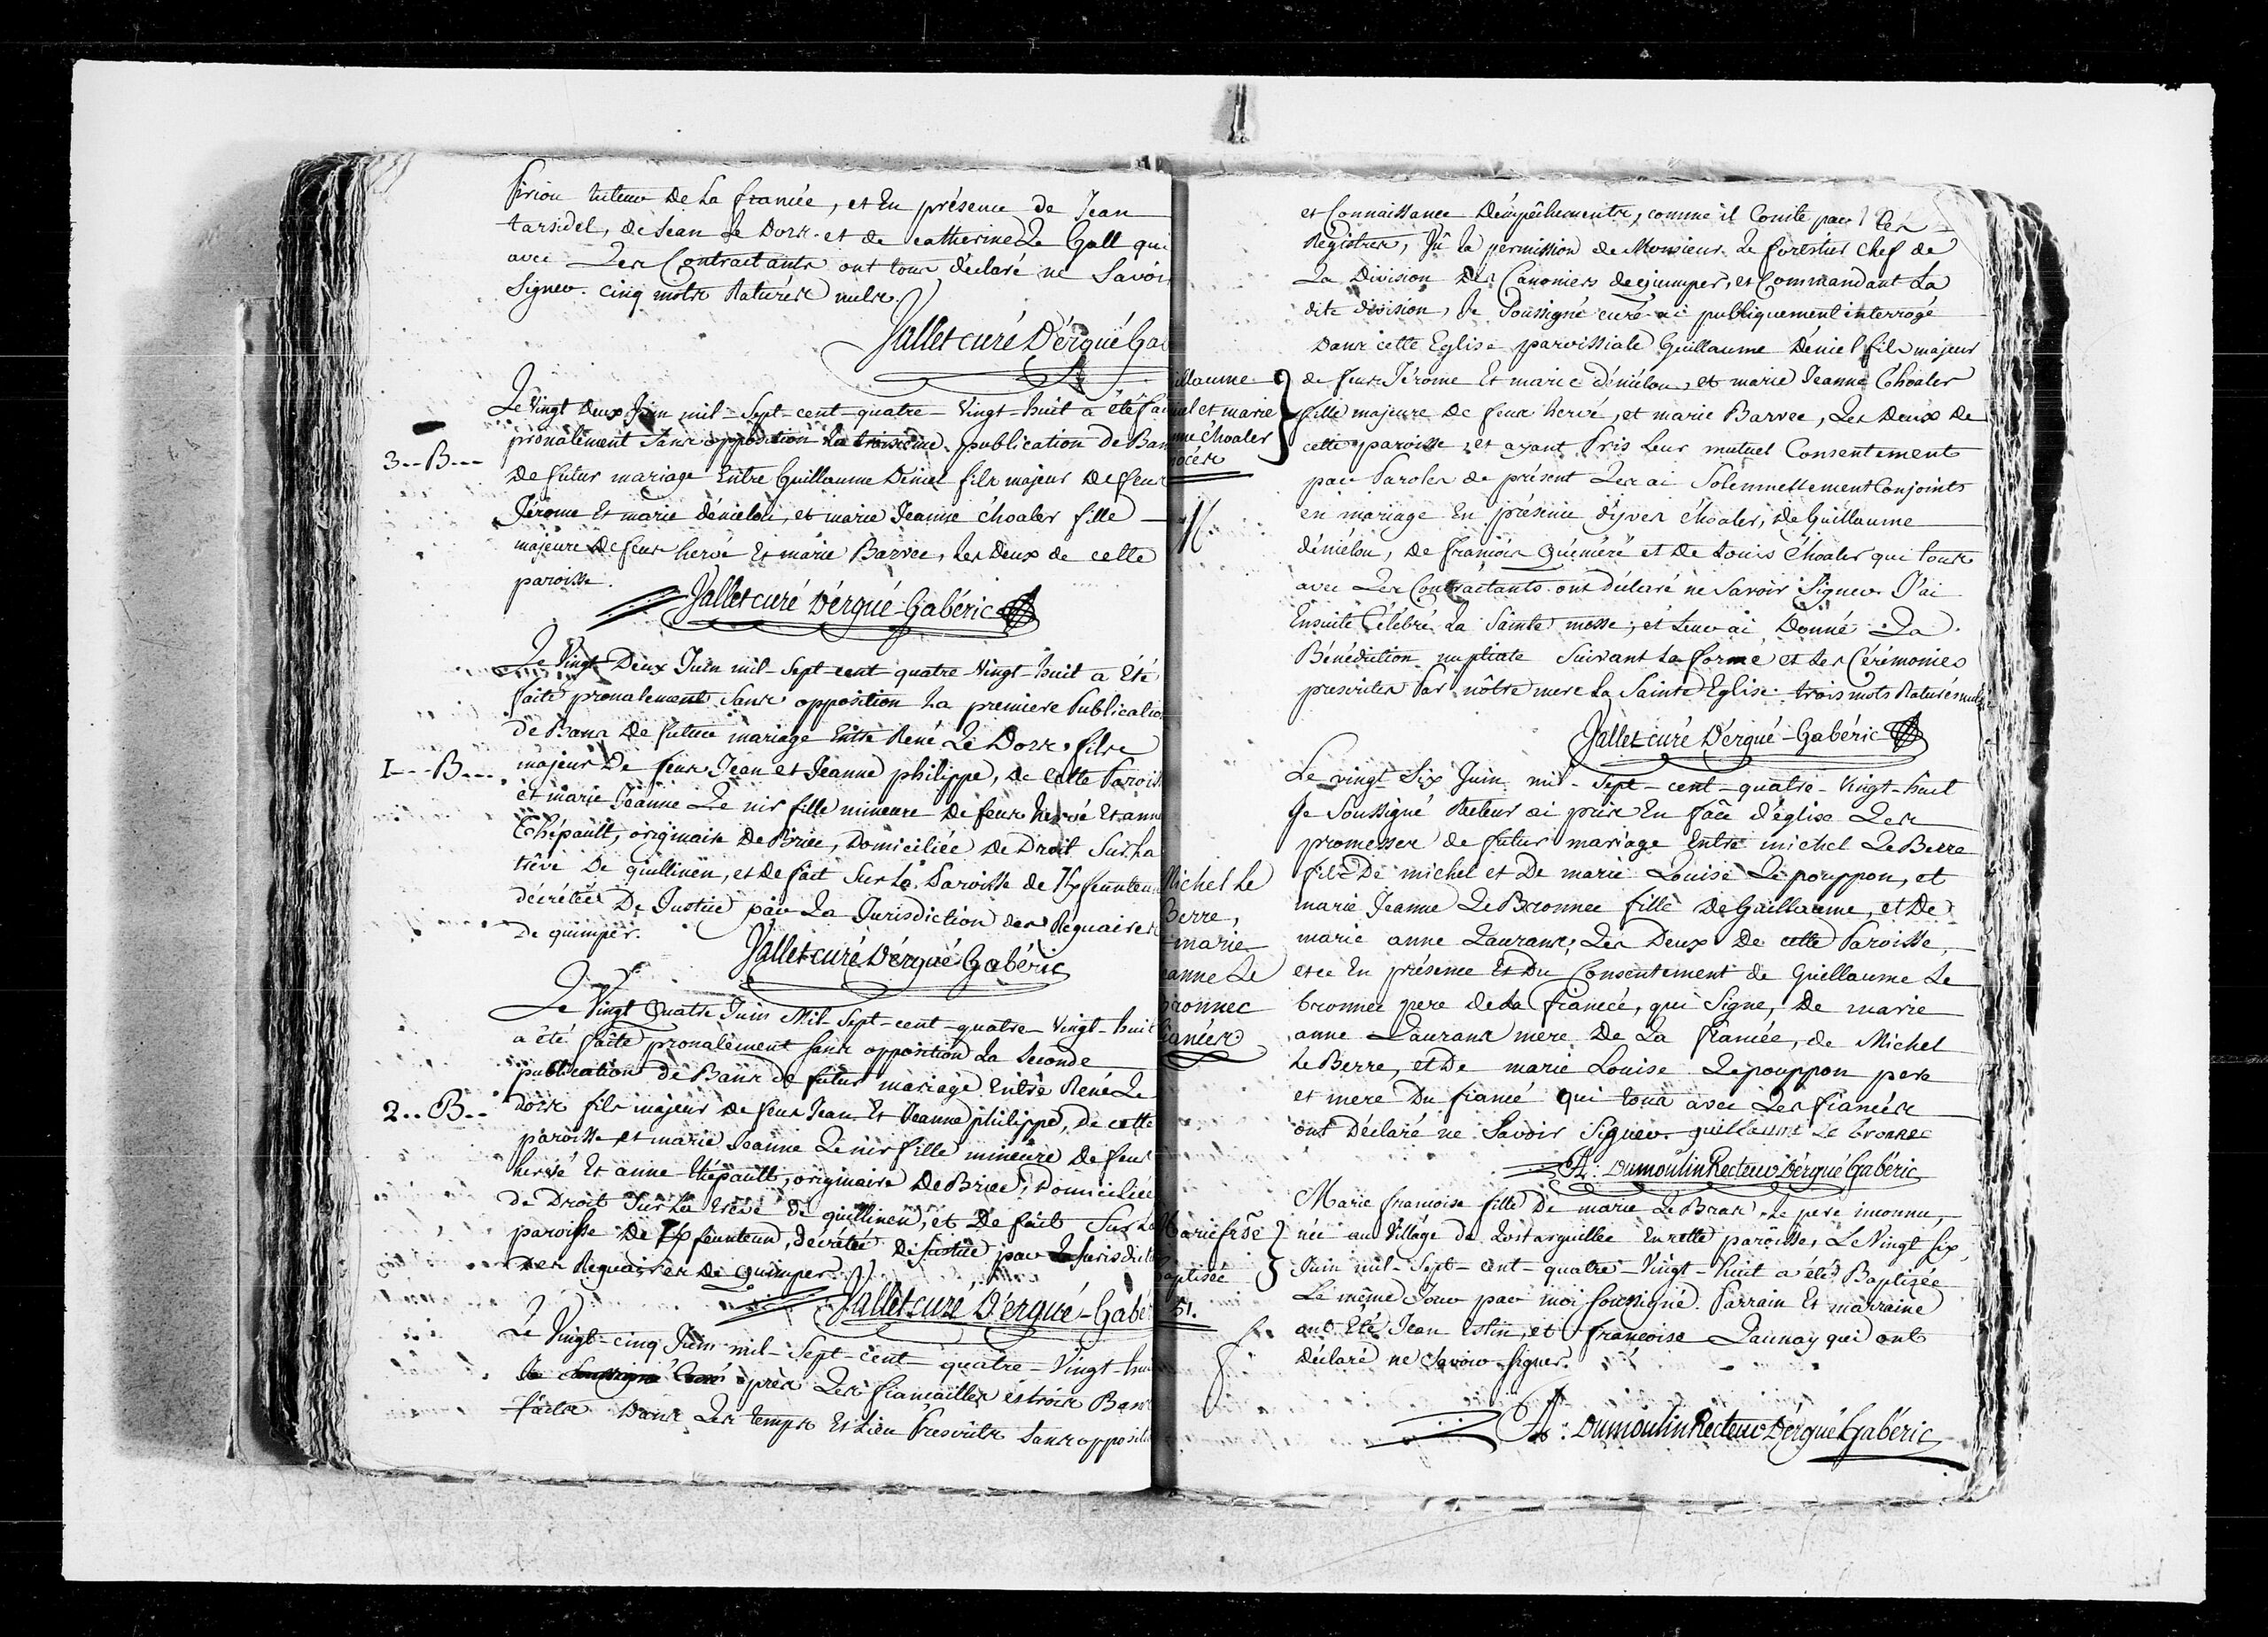 firiou tuteur De La fiancée, et En présence de Jean
taridel, de Jean Le Dorz et de catherine Le Gall qui
avec Les Contractants ont tous déclaré ne Savoir
Signer. cinq mots Raturés nuls.
Jallet curé D'érgué Ga
Le vingt Deux Juin mil-Sept-cent-quatre-Vingt-huit a été fa
pronalement Sans opposition La troisieme publication de Ban
3--B---
De futur mariage Entre Guillaume Déniel fils majeur De feus
Jérome Et marie déniélou, et marie Jeanne choaler fille
majeure De feus hervé Et marie Barvec, Les Deux de cette
paroisse.
Jallet curé D'érgué-Gabéric
Le Vingt Deux Juin mil-Sept cent quatre Vingt-huit a Eté
faite pronalement Sans opposition La premiere Publication
de Bans De future mariage Entre René Le Dorz, fils
I---B---
majeur De feus Jean et Jeanne philippe, De Cette Parois
et marie Jeanne Le nir fille mineure De feus hervé Et anne
Thépault, originaire De Briec, Domiciliée De Droit Sur La
trève De quillinen, et De fait Sur La Paroisse de
décrétée De Justice par La Jurisdiction des Reguaires
De quimper.
Jallet curé D'érgué-Gabéric
Le Vingt Quatre Juin Mil-Sept-cent-quatre-Vingt-huit
a été faite pronalement Sans opposition La Seconde
publication de Bans de futur mariage Entre René Le
2--B--
dorz fils majeur De feus Jean Et Jeanne philippe, De cette
paroisse et marie Jeanne Le nir fille mineure De feus
hervé Et anne thépault, originaire De Briec, Domiciliée
de Droit Sur La trève de quillinen, et De fait Sur La
paroisse De, décrétée De Justice par La Jurisdict
Des Reguaires De quimper.
Jallet curé D'érgué-Gabé
Le Vingt-cinq Juin mil-Sept-cent-quatre-Vingt-hui
Je Soussigné Curé après Les fiancailles et trois Bans
faits Dans Les temps Et Lieu Prescrits Sans oppositi
et Connaissance D'empêchements, comme il Conste par Les
Régistres, Vû La permission de Monsieur Le forestier Chef de
La Division Des Canoniers de quimper, et Commandant La
dite division, Je Soussigné curé ai publiquement interrogé
Dans cette Eglise paroissiale Guillaume Déniel fils majeur
illaume
de feus Jérome Et marie déniélou, et marie Jeanne Choaler
iel et marie
fille majeure De feus hervé, et marie Barvec, Les Deux De
nne choaler
cette paroisse, et ayant Pris Leur mutuel Consentement
nocés
par Paroles de présent Les ai Solemnellement Conjoints
en mariage En présence d'yves Choaler, de Guillaume
déniélou, de françois quéméré et De Louis Choaler qui tous
avec Les Contractants ont déclaré ne Savoir Signer. J'ai
Ensuite Célébré La Sainte messe, et Leur ai Donné La
Bénédiction nuptiale Suivant La forme et Les Cérémonies
prescrites Par nôtre mere La Sainte Eglise. trois mots Raturés nuls
Jallet curé D'érgué-Gabéric
Le vingt Six Juin mil-Sept-cent-quatre-Vingt-huit
Je Soussigné Recteur ai pris En face d'église Les
promesses de futur mariage Entre michel Le Berre
Michel Le
fils De michel et De marie Louise Le pouppon, et
Berre,
marie Jeanne Le Bronnec fille De Guillaume, et De
marie
marie anne Laurans, Les Deux De cette Paroisse,
eanne Le
et ce En présence Et Du Consentement de Guillaume Le
bronnec
bronnec pere de La fiancée, qui Signe, De marie
iancés
anne Laurans mere De La fiancée, de Michel
Le Berre, et De marie Louise Le pouppon pere
et mere Du fiancé qui tous avec Les fiancés
ont Déclaré ne Savoir Signer. guillaume Le bronnec
A: Dumoulin Recteur D'érgué Gabéric
Marie francoise fille De marie Le Bras, Le pere inconnu,
Marie frse
née au Village de Lostarguillec En cette paroisse, Le Vingt Six
Baptisée
Juin mil-Sept-cent-quatre-Vingt-huit a été Baptisée
51.
Le même Jour par moi soussigné. Parrain Et marraine
ont Eté Jean istin, et francoise Launay qui ont
Déclaré ne Savoir signer.
A: Dumoulin Recteur D'érgué Gabéric